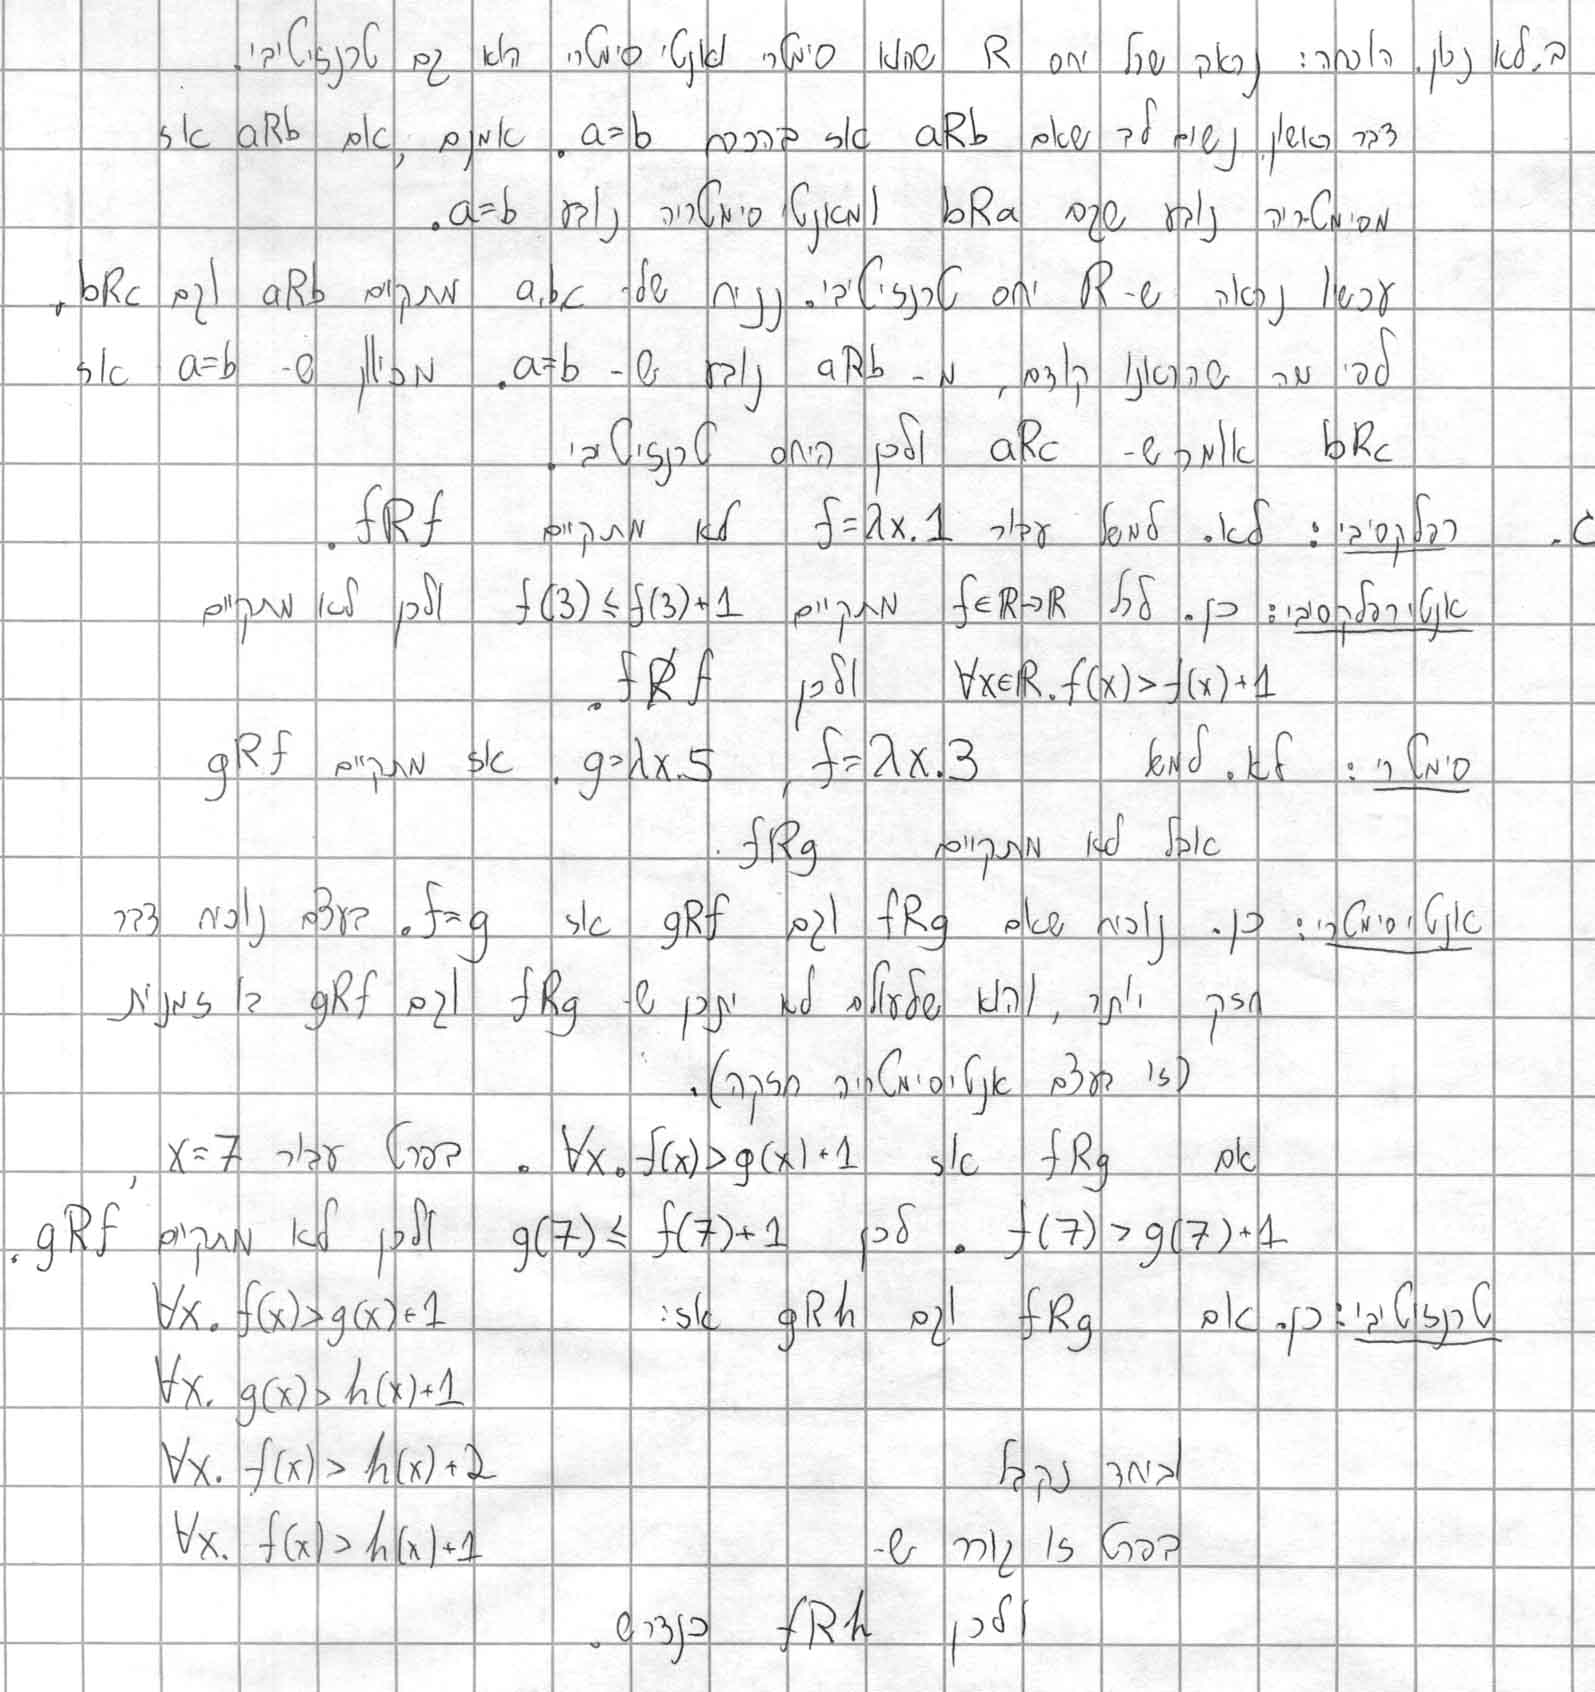 ב. לא נכון. הוכחה: נראה שכל יחס R שהוא סימטרי ואנטי סימטרי הוא גם טרנזיטיבי.
דבר ראשון, נשים לב שאם aRb אז בהכרח a=b. אמנם, אם aRb אז
מסימטריה נובע שגם bRa ומאנטי סימטריה נובע a=b.
עכשיו נראה ש-R יחס טרנזיטיבי. נניח שעל a,b,c מתקיים aRb וגם bRc.
לפי מה שהראנו קודם, מ- aRb נובע ש- a=b. מכיוון ש- a=b אז
bRc אומר ש- aRc ולכן היחס טרנזיטיבי.
ג. רפלקסיבי: לא. למשל עבור f=λx.1 לא מתקיים fRf.
אנטי רפלקסיבי: כן. לכל f∈R→R מתקיים f(3)≤f(3)+1 ולכן לא מתקיים
∀x∈R. f(x)>f(x)+1 ולכן fR̸f.
סימטרי: לא. למשל f=λx.3, g=λx.5. אז מתקיים gRf
אבל לא מתקיים fRg.
אנטי סימטרי: כן. נוכיח שאם fRg וגם gRf אז f=g. בעצם נוכיח דבר
חזק יותר, והוא שלעולם לא יתכן ש- fRg וגם gRf בו זמנית
(זו בעצם אנטיסימטריה חזקה).
אם fRg אז ∀x. f(x)>g(x)+1. בפרט עבור x=7,
f(7)>g(7)+1. לכן g(7)≤f(7)+1 ולכן לא מתקיים gRf.
טרנזיטיבי: כן. אם fRg וגם gRh אז: ∀x. f(x)>g(x)+1
∀x. g(x)>h(x)+1
וביחד נקבל ∀x. f(x)>h(x)+2
בפרט זו גורר ש- ∀x. f(x)>h(x)+1
ולכן fRh כנדרש.